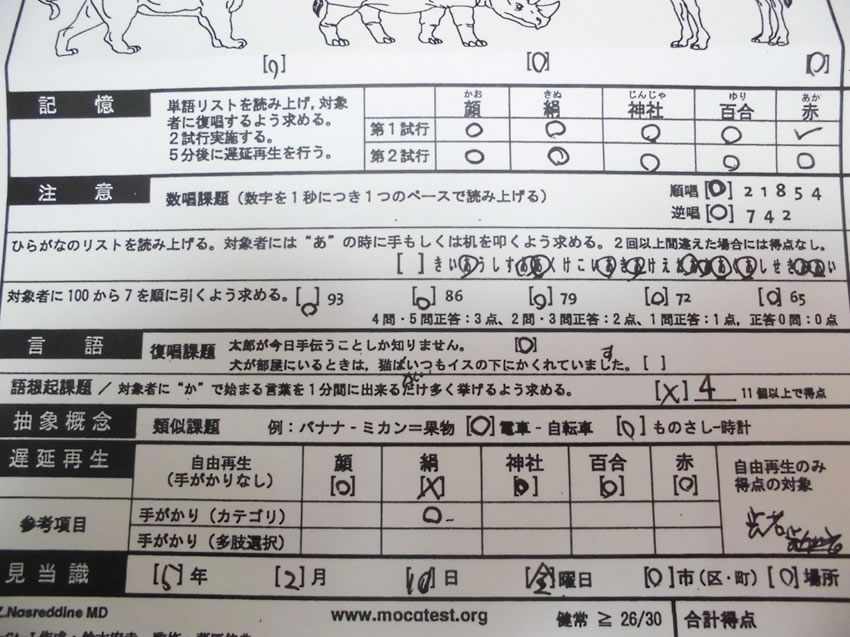 [O] [O] [O]
記憶 単語リストを読み上げ,対象者に復唱するよう求める。2試行実施する。5分後に遅延再生を行う。
かお きぬ じんじゃ ゆり あか
顔 絹 神社 百合 赤
第1試行 O O O O ✓
第2試行 O O O O O
注意 数唱課題(数字を1秒につき1つのペースで読み上げる)
順唱[O] 2 1 8 5 4
逆唱[O] 7 4 2
ひらがなのリストを読み上げる。対象者には“あ”の時に手もしくは机を叩くよう求める。2回以上間違えた場合には得点なし。
[ ] きいあうしすああくけこいあきあけえ
対象者に100から7を順に引くよう求める。[O] 93 [O] 86 [O] 79 [O] 72 [O] 65
4問・5問正答:3点、2問・3問正答:2点、1問正答:1点,正答0問:0点
言語 復唱課題 太郎が今日手伝うことしか知りません。 [O]
犬が部屋にいるときは,猫はいつもイスの下にかくれていました。[ ]
語想起課題 / 対象者に“か”で始まる言葉を1分間に出来るだけ多く挙げるよう求める。 [X] 4 11個以上で得点
抽象概念 類似課題 例:バナナ-ミカン=果物 [O]電車-自転車 [O]ものさし-時計
遅延再生 自由再生(手がかりなし) 顔[O] 絹[X] 神社[O] 百合[O] 赤[O] 自由再生のみ得点の対象
参考項目 手がかり(カテゴリ) O
手がかり(多肢選択)
見当識 [ ]年 [2]月 [10]日 [金]曜日 [O]市(区・町) [O]場所
Z.Nasreddine MD www.mocatest.org 健常 ≧ 26/30 合計得点